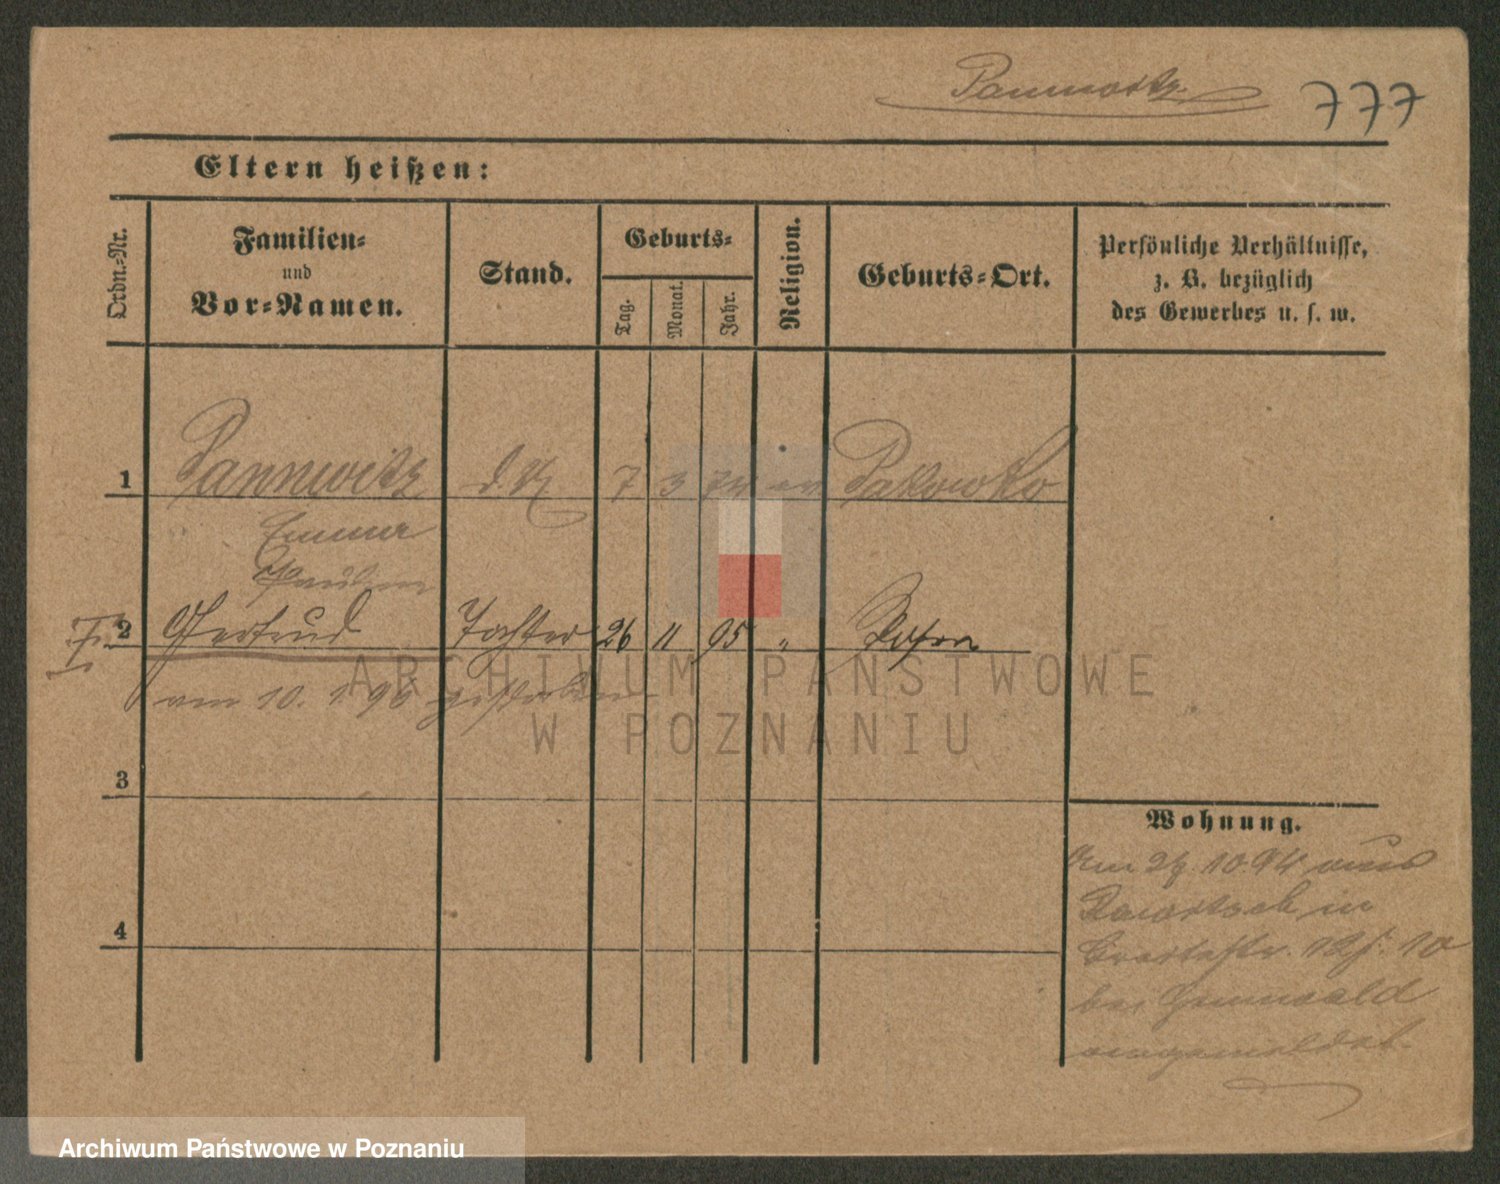 Pannwitz
777
Eltern heißen:
Ordn.-Nr.
Familien-
und
Vor-Namen.
Stand.
Geburts-
Tag.
Monat.
Jahr.
Religion.
Geburts-Ort.
Persönliche Verhältnisse,
z. B. bezüglich
des Gewerbes u. s. w.
1 Pannwitz 7 3 74 ev Pakowko
Emma
2 Gertrud Tochter 26 11 95 " Posen
am 10. 1. 96 gestorben
3
4
Wohnung.
Am 10 94 aus
Rawitsch in
Breitestr. 10
bei Grunwald
angemeldet.
ARCHIWUM PAŃSTWOWE
W POZNANIU
Archiwum Państwowe w Poznaniu